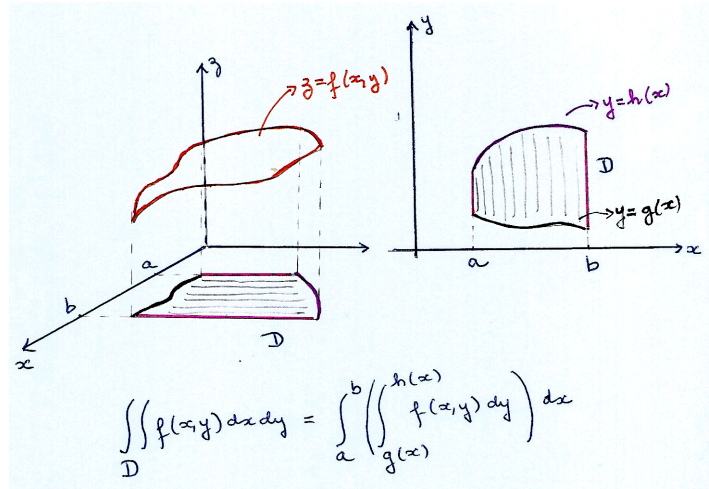 z
z=f(x,y)
a
b
x
D
y
y=h(x)
D
y=g(x)
a
b
x
∬_D f(x,y) dx dy = ∫_a^b ( ∫_{g(x)}^{h(x)} f(x,y) dy ) dx